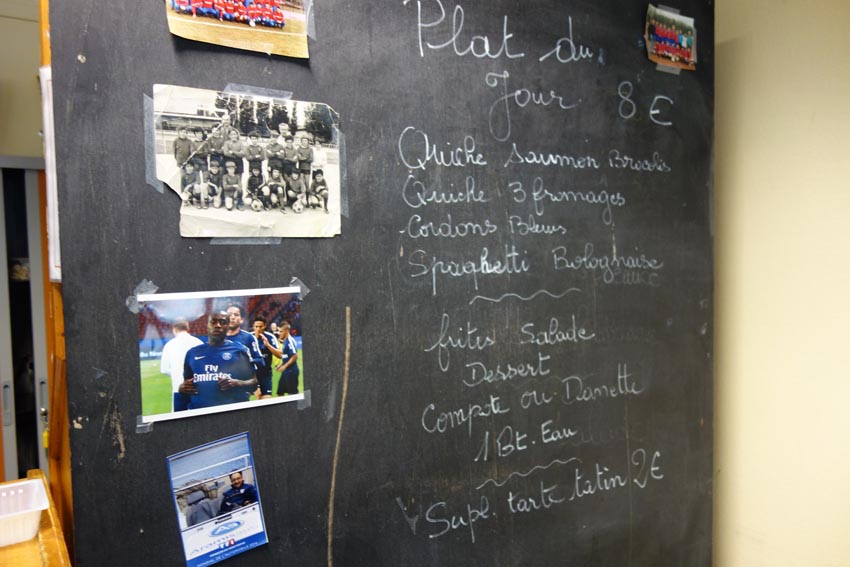 Plat du
Jour 8 €
Quiche saumon Brocolis
Quiche 3 fromages
Cordons Bleus
Spaghetti Bolognaise
frites Salade
Dessert
Compote ou Danette
1 Bt. Eau
Supl. tarte tatin 2€
Fly
Emirates